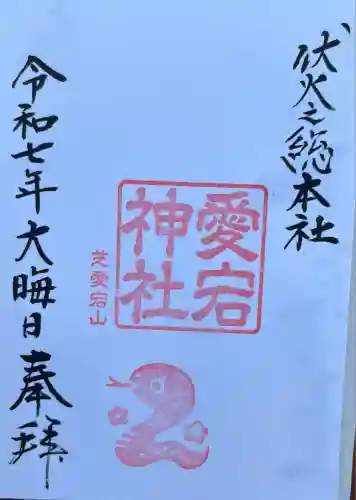 伏火之総本社
愛宕
神社
芝愛宕山
令和七年大晦日奉拝